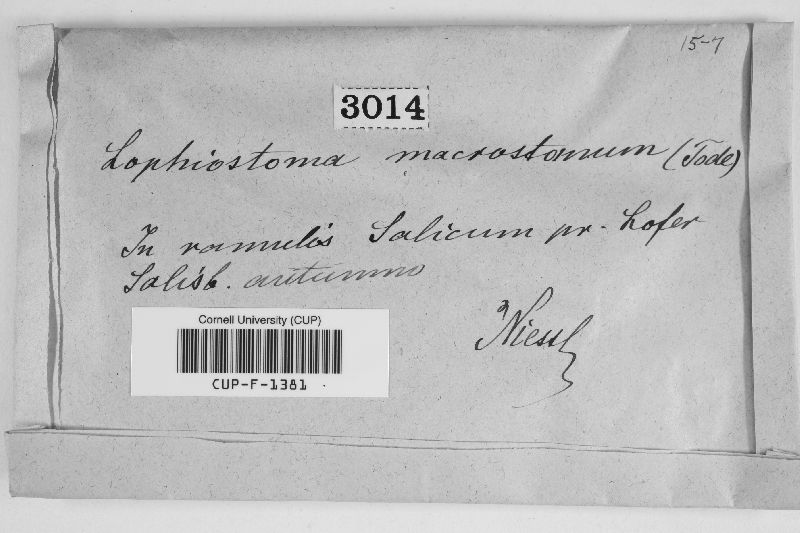 15-7
3014
Lophiostoma macrostomum (Tode)
In ramulis Salicum pr. Lofer
Salisb. autumno
Niessl
Cornell University (CUP)
CUP-F-1381